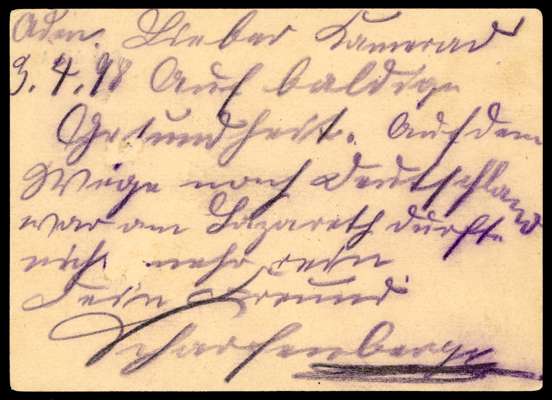 Aden. Lieber Kamerad
9.4.98 Auf baldige
Gesundheit. Auf dem
Wege nach Deutschland
war am Lazareth durfte
nicht mehr rein
Dein Freund
Scharfenberg